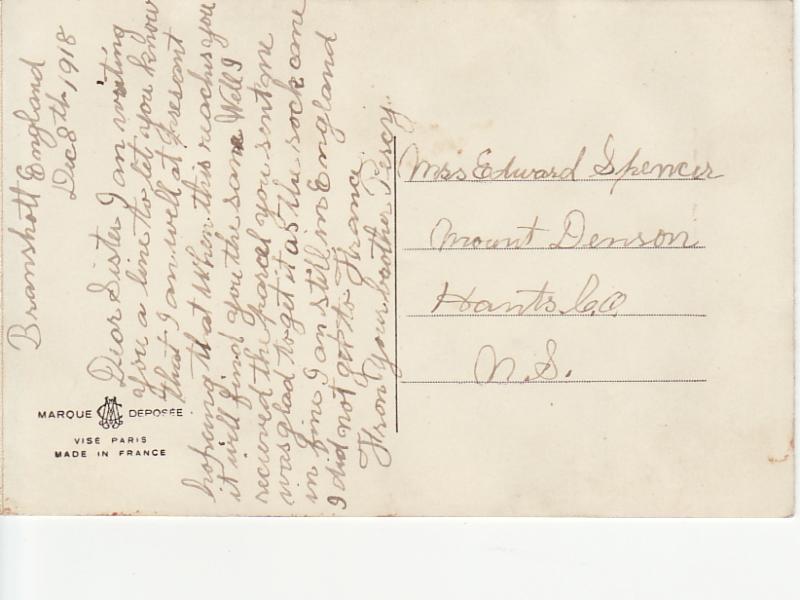 Bramshott England
Dec 8th 1918
Dear Sister I an writing
you a line to let you know
that I an well at preseant
hopeing that when this reaches you
it will find you the same Well I
recieved the parcel you sent me
was glad to get it as the sock cane
in fine I an still in England
I did not get to France
Fron your brother Percy
MARQUE DEPOSÉE
VISÉ PARIS
MADE IN FRANCE
Mrs Edward Spencer
Mount Denson
Hants Co
N.S.